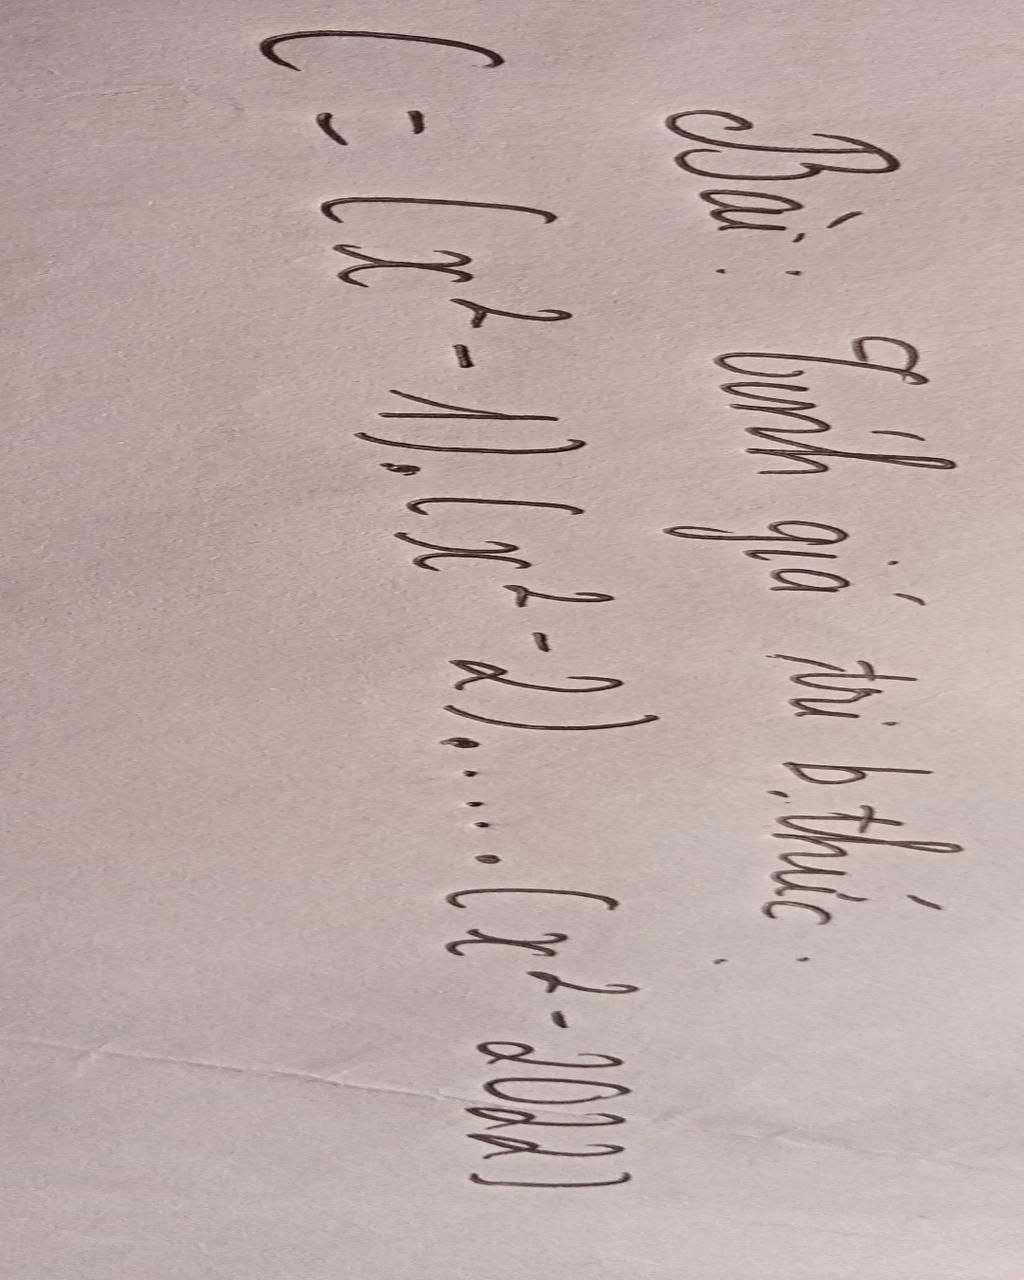 Bài: Tính giá trị b.thức:
C = (x² - 1).(x² - 2).....(x² - 2022)